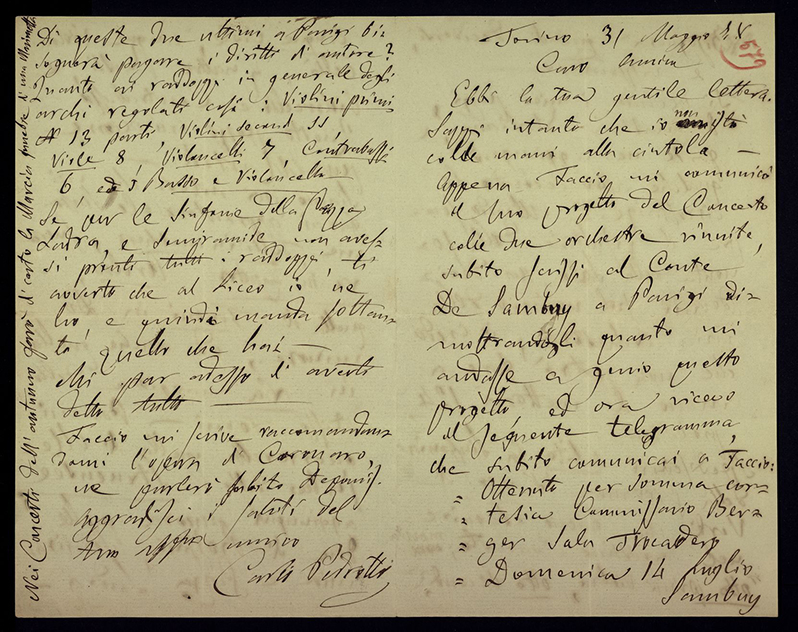 Torino 31 Maggio 78
579
Caro Amico
Ebbi la tua gentile lettera.
Sappi intanto che io non istò
colle mani alla cintola —
Appena Faccio mi comunicò
il suo progetto del Concerto
colle due orchestre riunite,
subito scrissi al Conte
De Sambuy a Parigi di=
mostrandogli quanto mi
andasse a genio questo
progetto, ed ora ricevo
il seguente telegramma,
che subito comunicai a Faccio:
" Ottenuto per somma cor=
" tesia Commissario Ber=
" ger Sala Trocadero
" Domenica 14 luglio
Sambuy
Di queste due ultimi a Parigi bi=
sognerà pagare i diritti di autore?
Quanto ai raddoppi in generale degli
archi regolati così: Violini primi
N 13 parti, Violini secondi 11
Viole 8, Violoncelli 7, Contrabassi
6, ed Basso e Violoncello —
Se per le Sinfonie della Gazza
Ladra, e Semiramide non aves=
si pronti tutti i raddoppi, ti
avverto che al Liceo io ne
ho, e quindi manda soltan=
to quello che hai —
Mi par adesso di averti
detto tutto —
Faccio mi scrive raccomandan=
domi l'opera di Coronaro,
ne parlerò subito Depanis.
Aggradisci i saluti del
tuo affmo amico
Carlo Pedrotti
Nei Concerti dell'autunno farò di certo la Marcia funebre di una Marionetta